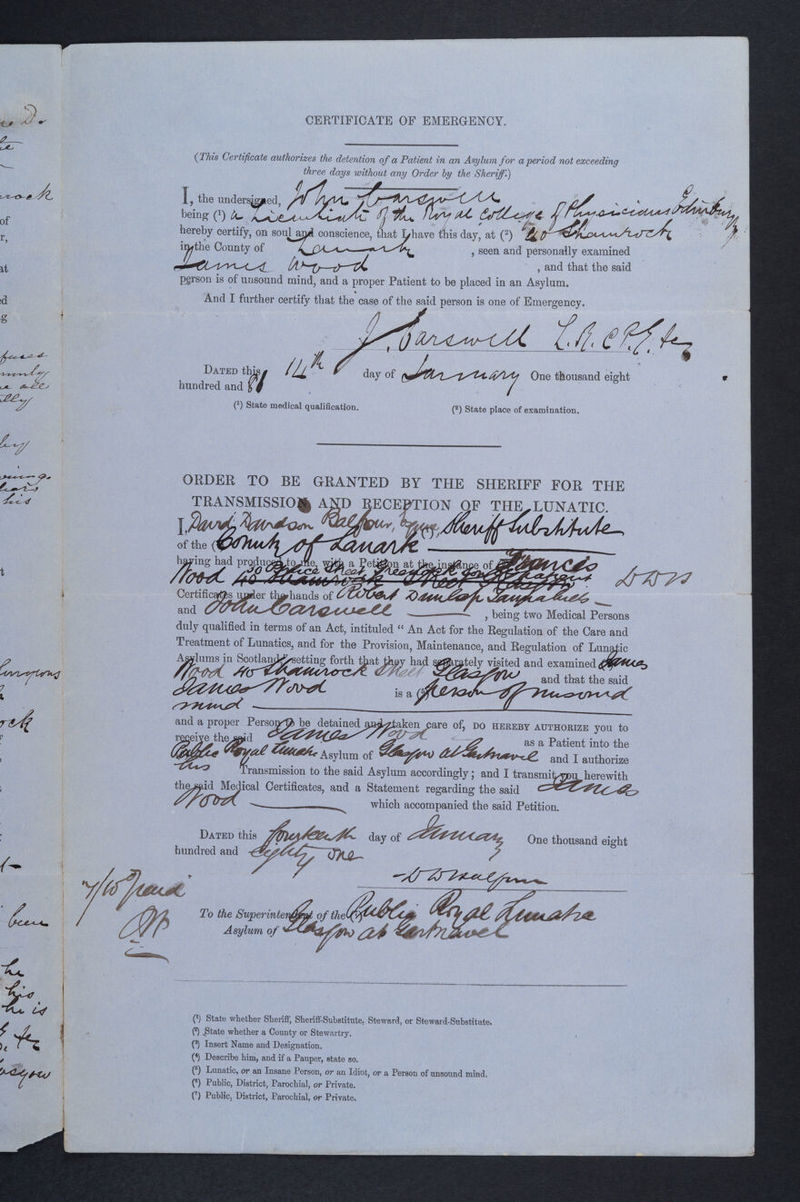 CERTIFICATE OF EMERGENCY.
(This Certificate authorizes the detention of a Patient in an Asylum for a period not exceeding
three days without any Order by the Sheriff.)
I, the undersigned, John Carswell
being (¹) a Licentiate of the Royal College of Physicians Edinburgh
hereby certify, on soul and conscience, that I have this day, at (²) 40 Shamrock
in the County of Lanark , seen and personally examined
James Wood , and that the said
person is of unsound mind, and a proper Patient to be placed in an Asylum.
And I further certify that the case of the said person is one of Emergency.
J. Carswell L.R.C.P.E. &c
DATED this 14th day of January One thousand eight
hundred and 81
(¹) State medical qualification. (²) State place of examination.
ORDER TO BE GRANTED BY THE SHERIFF FOR THE
TRANSMISSION AND RECEPTION OF THE LUNATIC.
I, David Davidson Balfour, Esquire, (¹) Sheriff Substitute
of the (²) County of Lanark
having had produced to me, with a Petition at the instance of (³) Francis
Wood 30 Police Street
40 Shamrock Street DDB
Certificates under the hands of Robert Dunlop
and John Carswell , being two Medical Persons
duly qualified in terms of an Act, intituled “ An Act for the Regulation of the Care and
Treatment of Lunatics, and for the Provision, Maintenance, and Regulation of Lunatic
Asylums in Scotland,” setting forth that they had separately visited and examined James
Wood 40 Shamrock Street Glasgow and that the said
James Wood is a (⁵) person of unsound
mind
and a proper Person to be detained and taken care of, DO HEREBY AUTHORIZE you to
receive the said James Wood as a Patient into the
Public Royal Lunatic Asylum of Glasgow at Gartnavel and I authorize
his Transmission to the said Asylum accordingly; and I transmit you herewith
the said Medical Certificates, and a Statement regarding the said James
Wood which accompanied the said Petition.
DATED this fourteenth day of January One thousand eight
hundred and eighty one
DDBalfour
7/6 paid
To the Superintendent of the (⁷) Public Royal Lunatic
Asylum of Glasgow at Gartnavel
(¹) State whether Sheriff, Sheriff-Substitute, Steward, or Steward-Substitute.
(²) State whether a County or Stewartry.
(³) Insert Name and Designation.
(⁴) Describe him, and if a Pauper, state so.
(⁵) Lunatic, or an Insane Person, or an Idiot, or a Person of unsound mind.
(⁶) Public, District, Parochial, or Private.
(⁷) Public, District, Parochial, or Private.